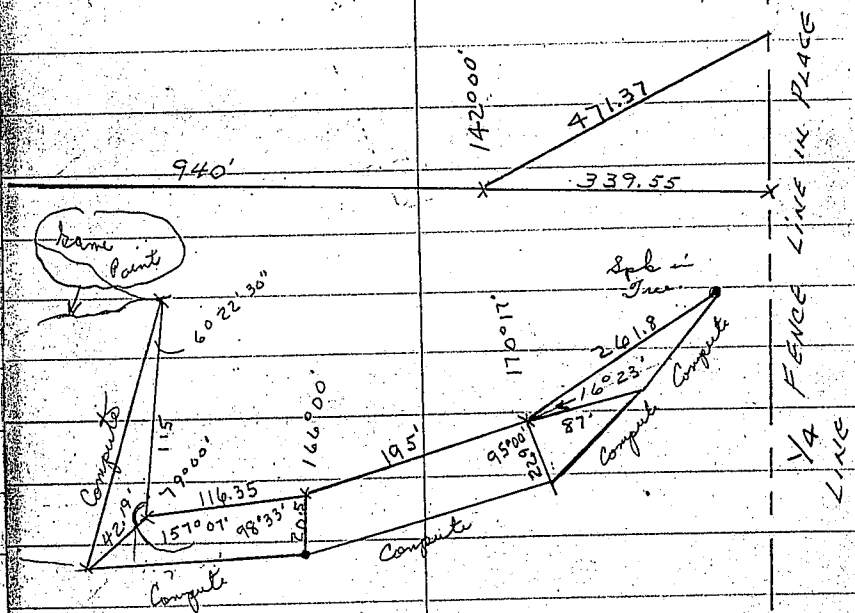 142°00'
471.37
940'
339.55
1/4 FENCE LINE IN PLACE
LINE
Same
Point
6° 22' 30"
Spk in
Tree
170° 12'
261.8
16° 23'
Compute
87'
Compute
95°00'
Compute
115
79°00'
166°00'
195'
116.35
42.19'
157° 07'
98°33'
20.5
Compute
Compute